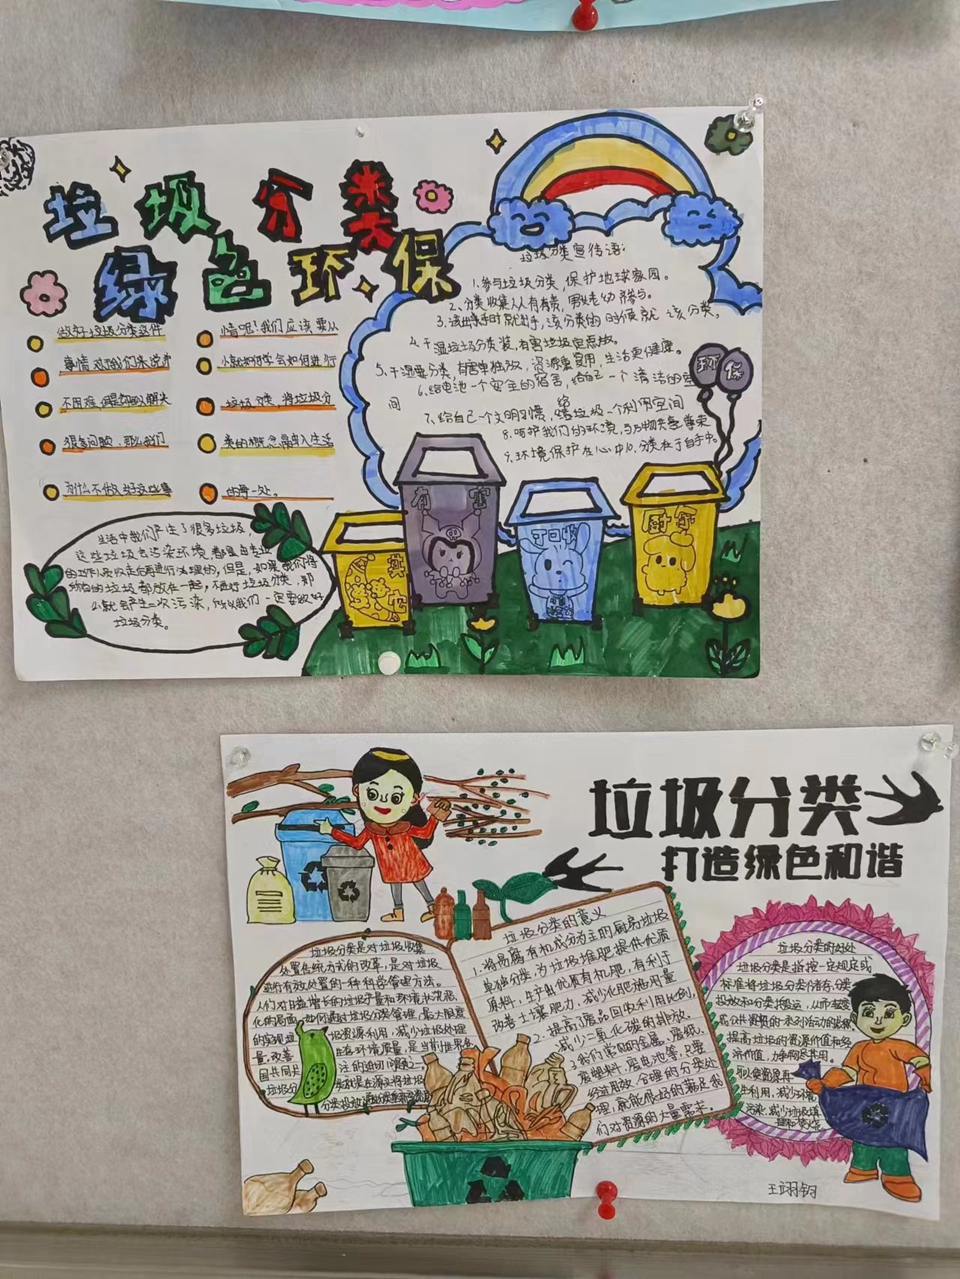 垃圾分类
绿色环保
做好垃圾分类这件
事情对我们来说并
不困难
很多问题,那么我们
为什么不做好这些事
情呢!我们应该要从
小就好好学会如何进行
垃圾分类,将垃圾分
类的概念融入生活
的每一处。
垃圾分类宣传语:
1.参与垃圾分类,保护地球家园。
2、分类收集人人有责,男女老幼齐参与。
3.该出手时就出手,该分类的时候就该分类。
4.干湿垃圾分类装,有害垃圾定点放。
5、干湿要分类,有害单独放,资源重复用,生活更健康。
6、给电池一个安全的宿舍,给自己一个清洁的空
间
7、给自己一个文明习惯,给垃圾一个利用空间
8.呵护我们的环境,与万物共享尊荣
9、环境保护在心中,分类在于自手中。
环保
其他
有害
可回收
厨余
生活中我们产生了很多垃圾,
这些垃圾会污染环境,都是由专业
的工作人员收走后再进行处理的,但是,如果我们将
所有的垃圾都放在一起,不进行垃圾分类,那
么就会产生二次污染,所以我们一定要做好
垃圾分类。
垃圾分类
打造绿色和谐
垃圾分类是对垃圾收集
处置传统方式的改革,是对垃圾
进行有效处置的一种科学管理方法。
人们对日益增长的垃圾产量和环境状况恶
化的局面,如何通过垃圾分类管理,最大限度
的实现垃圾资源利用,减少垃圾处理
量,改善生存环境质量,是当前世界各
国共同关注的迫切问题之一。
垃圾分类就是在源头将垃圾
分类投放
垃圾分类的意义
1.将易腐有机成分为主的厨房垃圾
单独分类,为垃圾堆肥提供优质
原料,生产出优质有机肥,有利于
改善土壤肥力,减少化肥施用量
2.提高了废品回收利用比例,
减少二氧化碳的排放。
3、我们常见的金属、废纸、
废塑料,废电池等,只要
经过用放,合理的分类处
理,就能很好的满足我
们对资源的大量需求。
垃圾分类的好处
垃圾分类是指按一定规定或
标准将垃圾分类储存,分类
投放和分类搬运,从而转变
成公共资源的一系列活动的总称
提高垃圾的资源价值和经
济价值,力争物尽其用。
可以使资源再
生利用,减少环境
污染,减少垃圾填
埋和焚烧
王翊钥